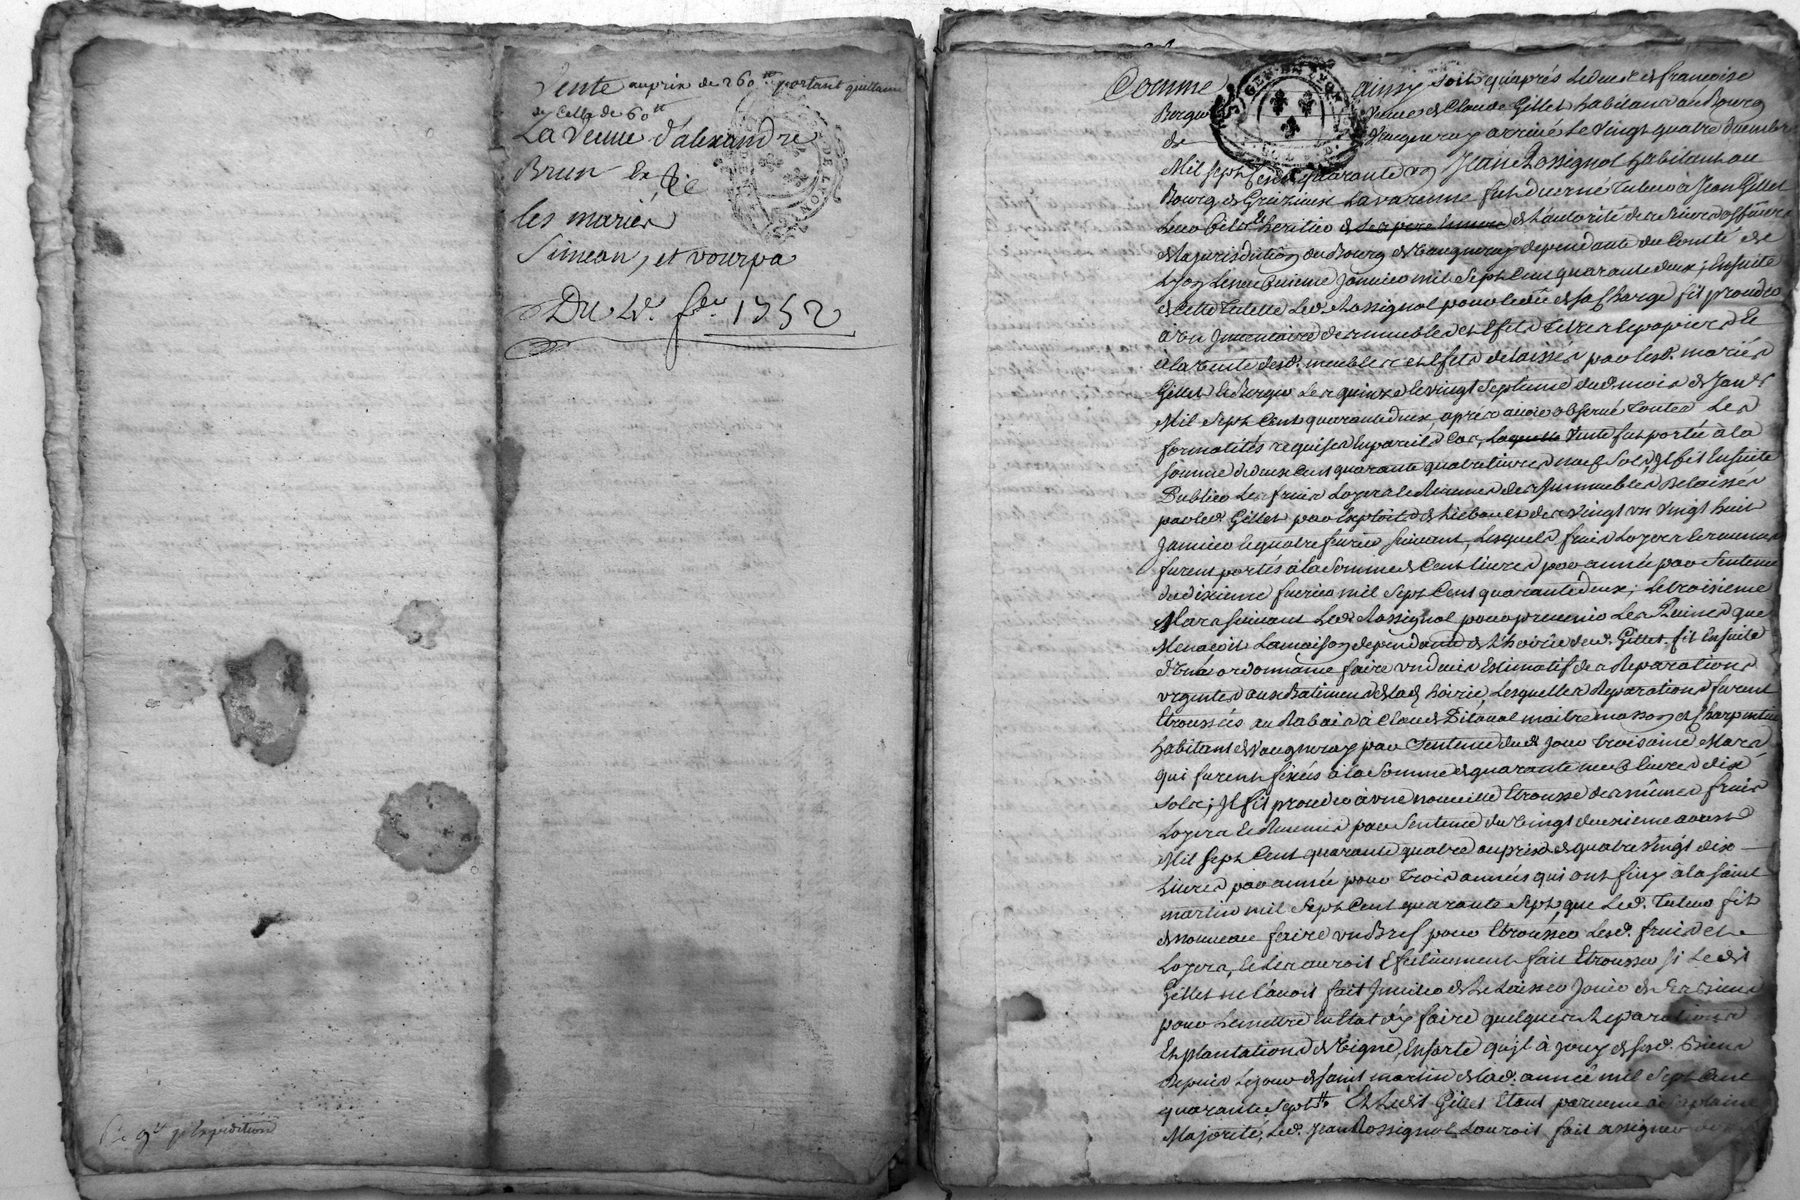 Vente au prix de 260ᵗᵗ portant quittance
de Celle de 60ᵗᵗ
La Veuve d'alexandre
Brun
les mariés
Simeon, et vourpa
Du 4e. fer. 1752
expedition
Comme ainsy soit qu'aprés le deces de francoise
Bergu Veuve de Claude Gillet habitans du Bourg
de Vaugneray arrivé le Vingt quatre decembre
Mil sept Cent quarante un Jean Rossignol habitant au
Bourg de Grezieux Lavarenne fut decerné Tuteur à Jean Gillet
de la jurisdiction du Bourg de Vaugneray dependante du Comté de
Lyon Le neufvieme Janvier mil Sept Cent quarante deux; Ensuite
de Cette Tutelle Led. Rossignol pour le dû de sa Charge fit proceder
à un Inventaire des meubles et Effets Titres et papiers et
à la vente desd. meubles et effets delaissés par lesd. mariés
Gillet et Bergu Les quinze et vingt Septieme dud. mois de Janvr
Mil Sept Cent quarante deux, apres avoir observé Toutes Les
formalités requises En pareil Cas, laquelle Vente fut portée à la
somme de deux Cent quarante quatre livres neuf Sols, Il fit Ensuite
Publier Les fruits Loyers et Revenus des Immeubles delaissés
par led. Gillet par Exploits de Thiebaud des Vingt un Vingt huit
Janvier et quatre fevrier suivant, Lesquels fruits Loyers et revenus
furent portés à la Somme de Cent livres par année par Sentence
du dixieme fevrier mil Sept Cent quarante deux; Le troisieme
Mars suivant Led. Rossignol pour prevenir Les Ruines que
Menacoit La maison dependante de L'hoirie dud. Gillet fit Ensuite
d'une ordonnance faire un devis Estimatif des Reparations
urgentes aux Batimens de lad. hoirie, Lesquelles Reparations furent
Etroussées au Rabais à Claude Pitaval maitre masson et Charpentier
habitant de Vaugneray par Sentence dud. Jour troisieme Mars
qui furent fixées à la Somme de quarante neuf livres dix
Sols; Il fit proceder à une nouvelle Etrousse des mêmes fruits
Loyers et Revenus par Sentence du Vingt deuxieme aoust
Mil Sept Cent quarante quatre au prix de quatre Vingt dix
Livres par année pour Trois années qui ont finy à la Saint
martin mil Sept Cent quarante Sept que Led. Tuteur fit
de nouveau faire un Bref pour Etrousser Lesd. fruits et
Loyers, et Les auroit Effectivement fait Etrousser si Ledit
Gillet ne L'avoit fait Inviter de Le Laisser Jouir de Ses Biens
pour Les mettre En Etat d'y faire quelques Reparations
Et plantations de Vigne, Ensorte qu'il à jouy de sesd. Biens
depuis Le jour de Saint martin de lad. année mil Sept Cent
quarante Sept. Et Ledit Gillet Etant parvenu à Sa plaine
Majorité, Led. Jean Rossignol L'auroit fait assigner